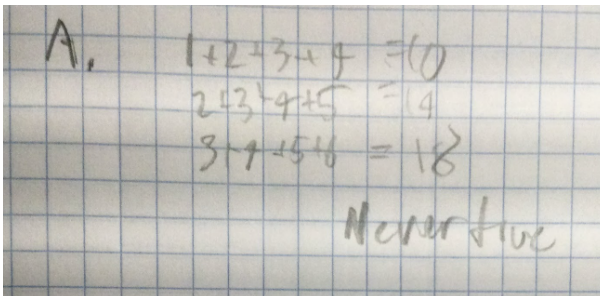 A. 1+2+3+4 =10
2+3+4+5 =14
3+4+5+6 = 18
Never true